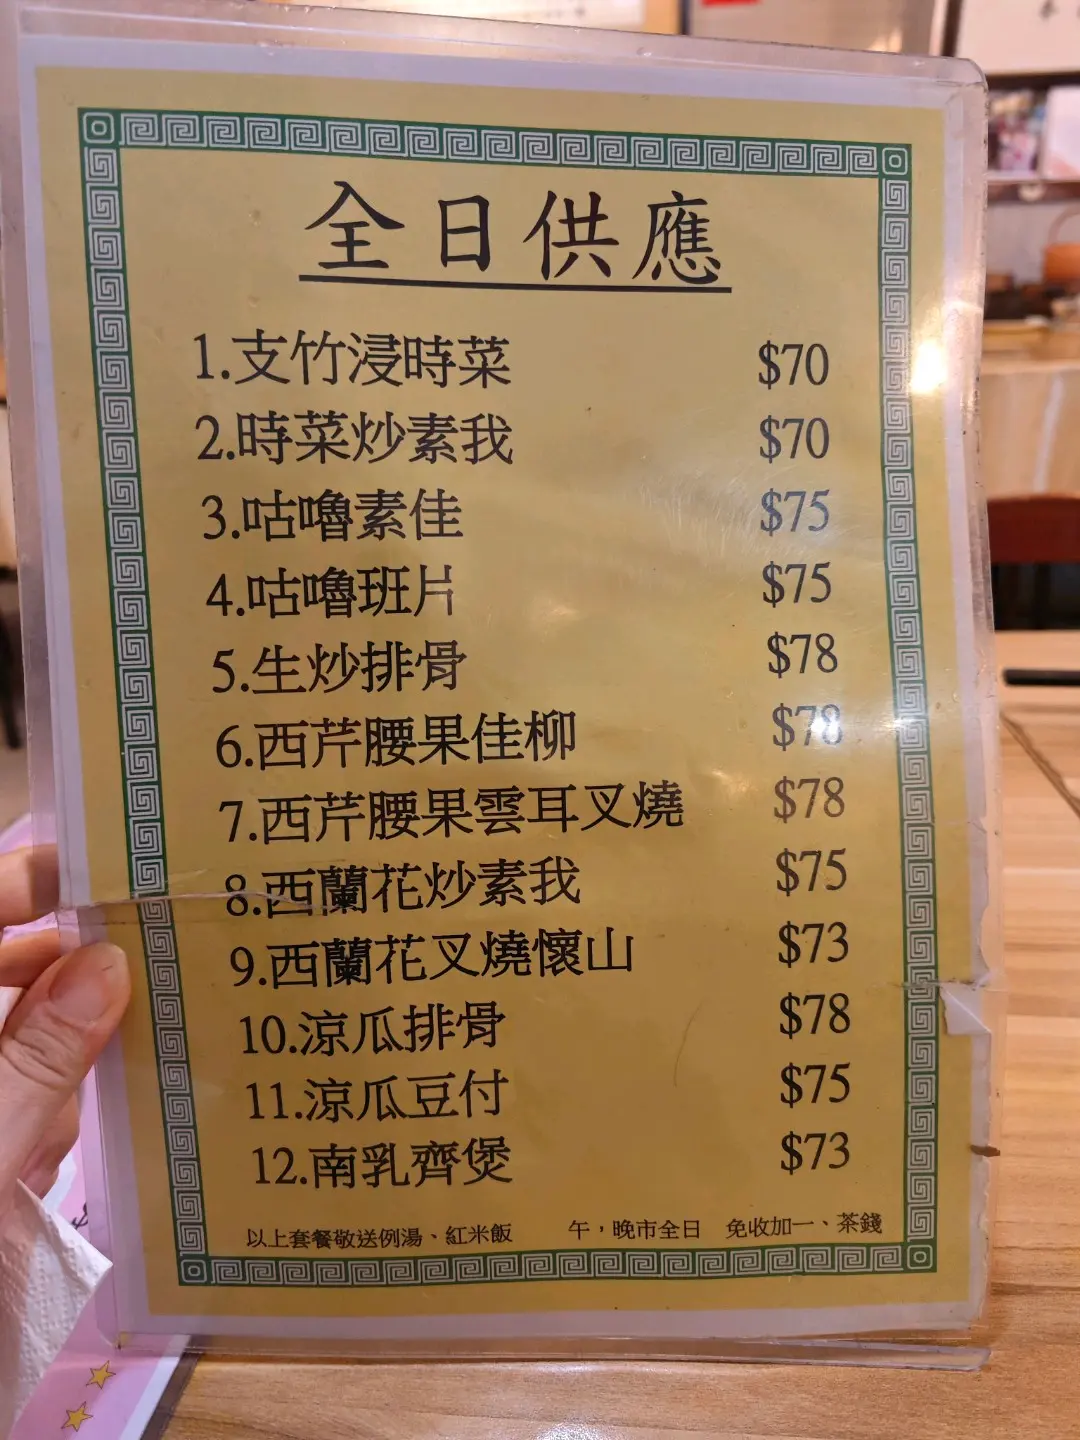 全日供應
1.支竹浸時菜 $70
2.時菜炒素我 $70
3.咕嚕素佳 $75
4.咕嚕班片 $75
5.生炒排骨 $78
6.西芹腰果佳柳 $78
7.西芹腰果雲耳叉燒 $78
8.西蘭花炒素我 $75
9.西蘭花叉燒懷山 $73
10.涼瓜排骨 $78
11.涼瓜豆付 $75
12.南乳齊煲 $73
以上套餐敬送例湯、紅米飯 午，晚市全日 免收加一、茶錢